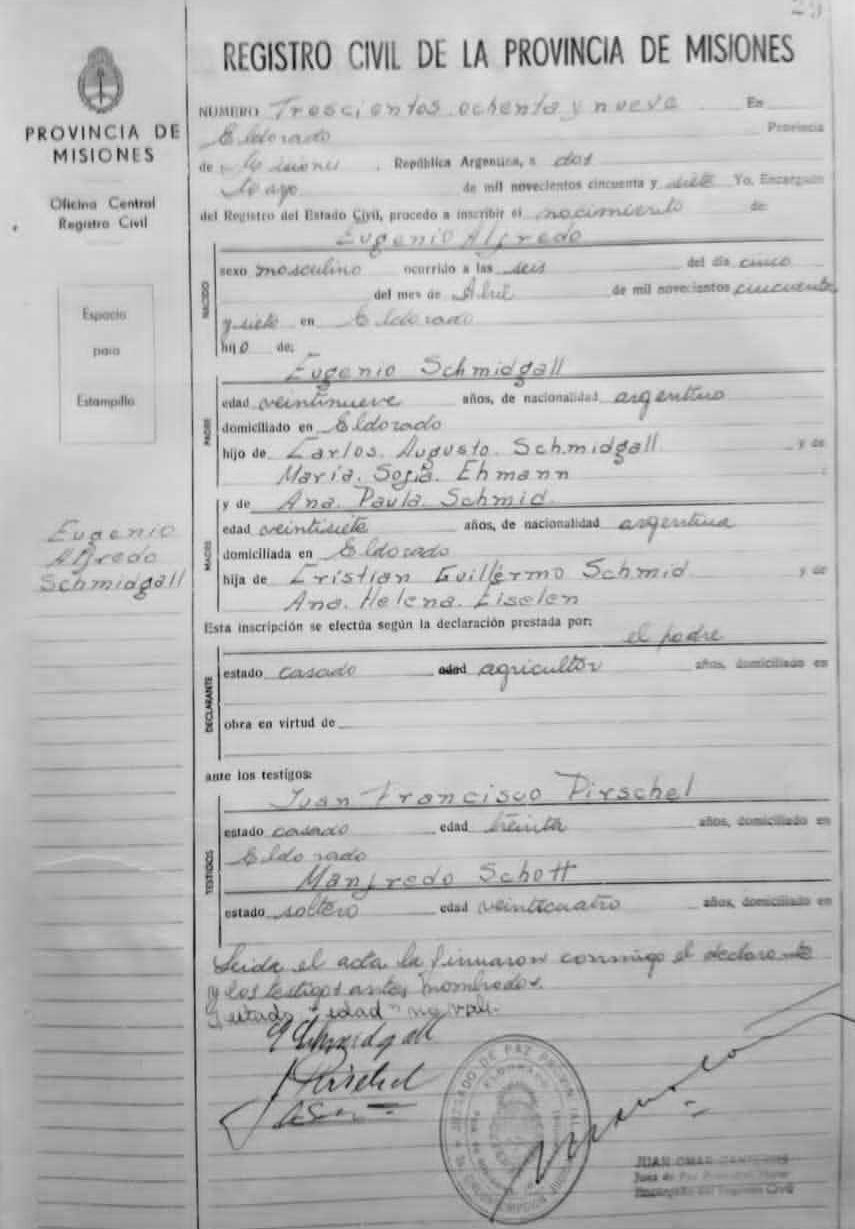 29
REGISTRO CIVIL DE LA PROVINCIA DE MISIONES
PROVINCIA DE
MISIONES
Oficina Central
Registro Civil
Espacio
para
Estampilla
Eugenio
Alfredo
Schmidgall
NUMERO Trescientos ochenta y nueve En
Eldorado Provincia
de Misiones, República Argentina, a dos
Mayo de mil novecientos cincuenta y siete Yo, Encargado
del Registro del Estado Civil, procedo a inscribir el nacimiento de
Eugenio Alfredo
NACIDO
sexo masculino ocurrido a las seis del día cinco
del mes de Abril de mil novecientos cincuenta
y siete en Eldorado
hijo de:
Eugenio Schmidgall
PADRE
edad veintinueve años, de nacionalidad argentino
domiciliado en Eldorado
hijo de Carlos Augusto Schmidgall y de
María Sofia Ehmann
y de Ana Paula Schmid
MADRE
edad veintisiete años, de nacionalidad argentina
domiciliada en Eldorado
hija de Cristian Guillermo Schmid y de
Ana Helena Eiselen
Esta inscripción se efectúa según la declaración prestada por:
el padre
DECLARANTE
estado casado edad agricultor años, domiciliado en
obra en virtud de
ante los testigos:
Juan Francisco Pirschel
TESTIGOS
estado casado edad treinta años, domiciliado en
Eldorado
Manfredo Schott
estado soltero edad veinticuatro años, domiciliado en
Leida el acta la firmaron conmigo el declarante
y los testigos antes nombrados.
Testado "edad" no vale.
E Schmidgall
JUZGADO DE PAZ
ELDORADO
JUAN OMAR
Juez de Paz
Encargado del Registro Civil